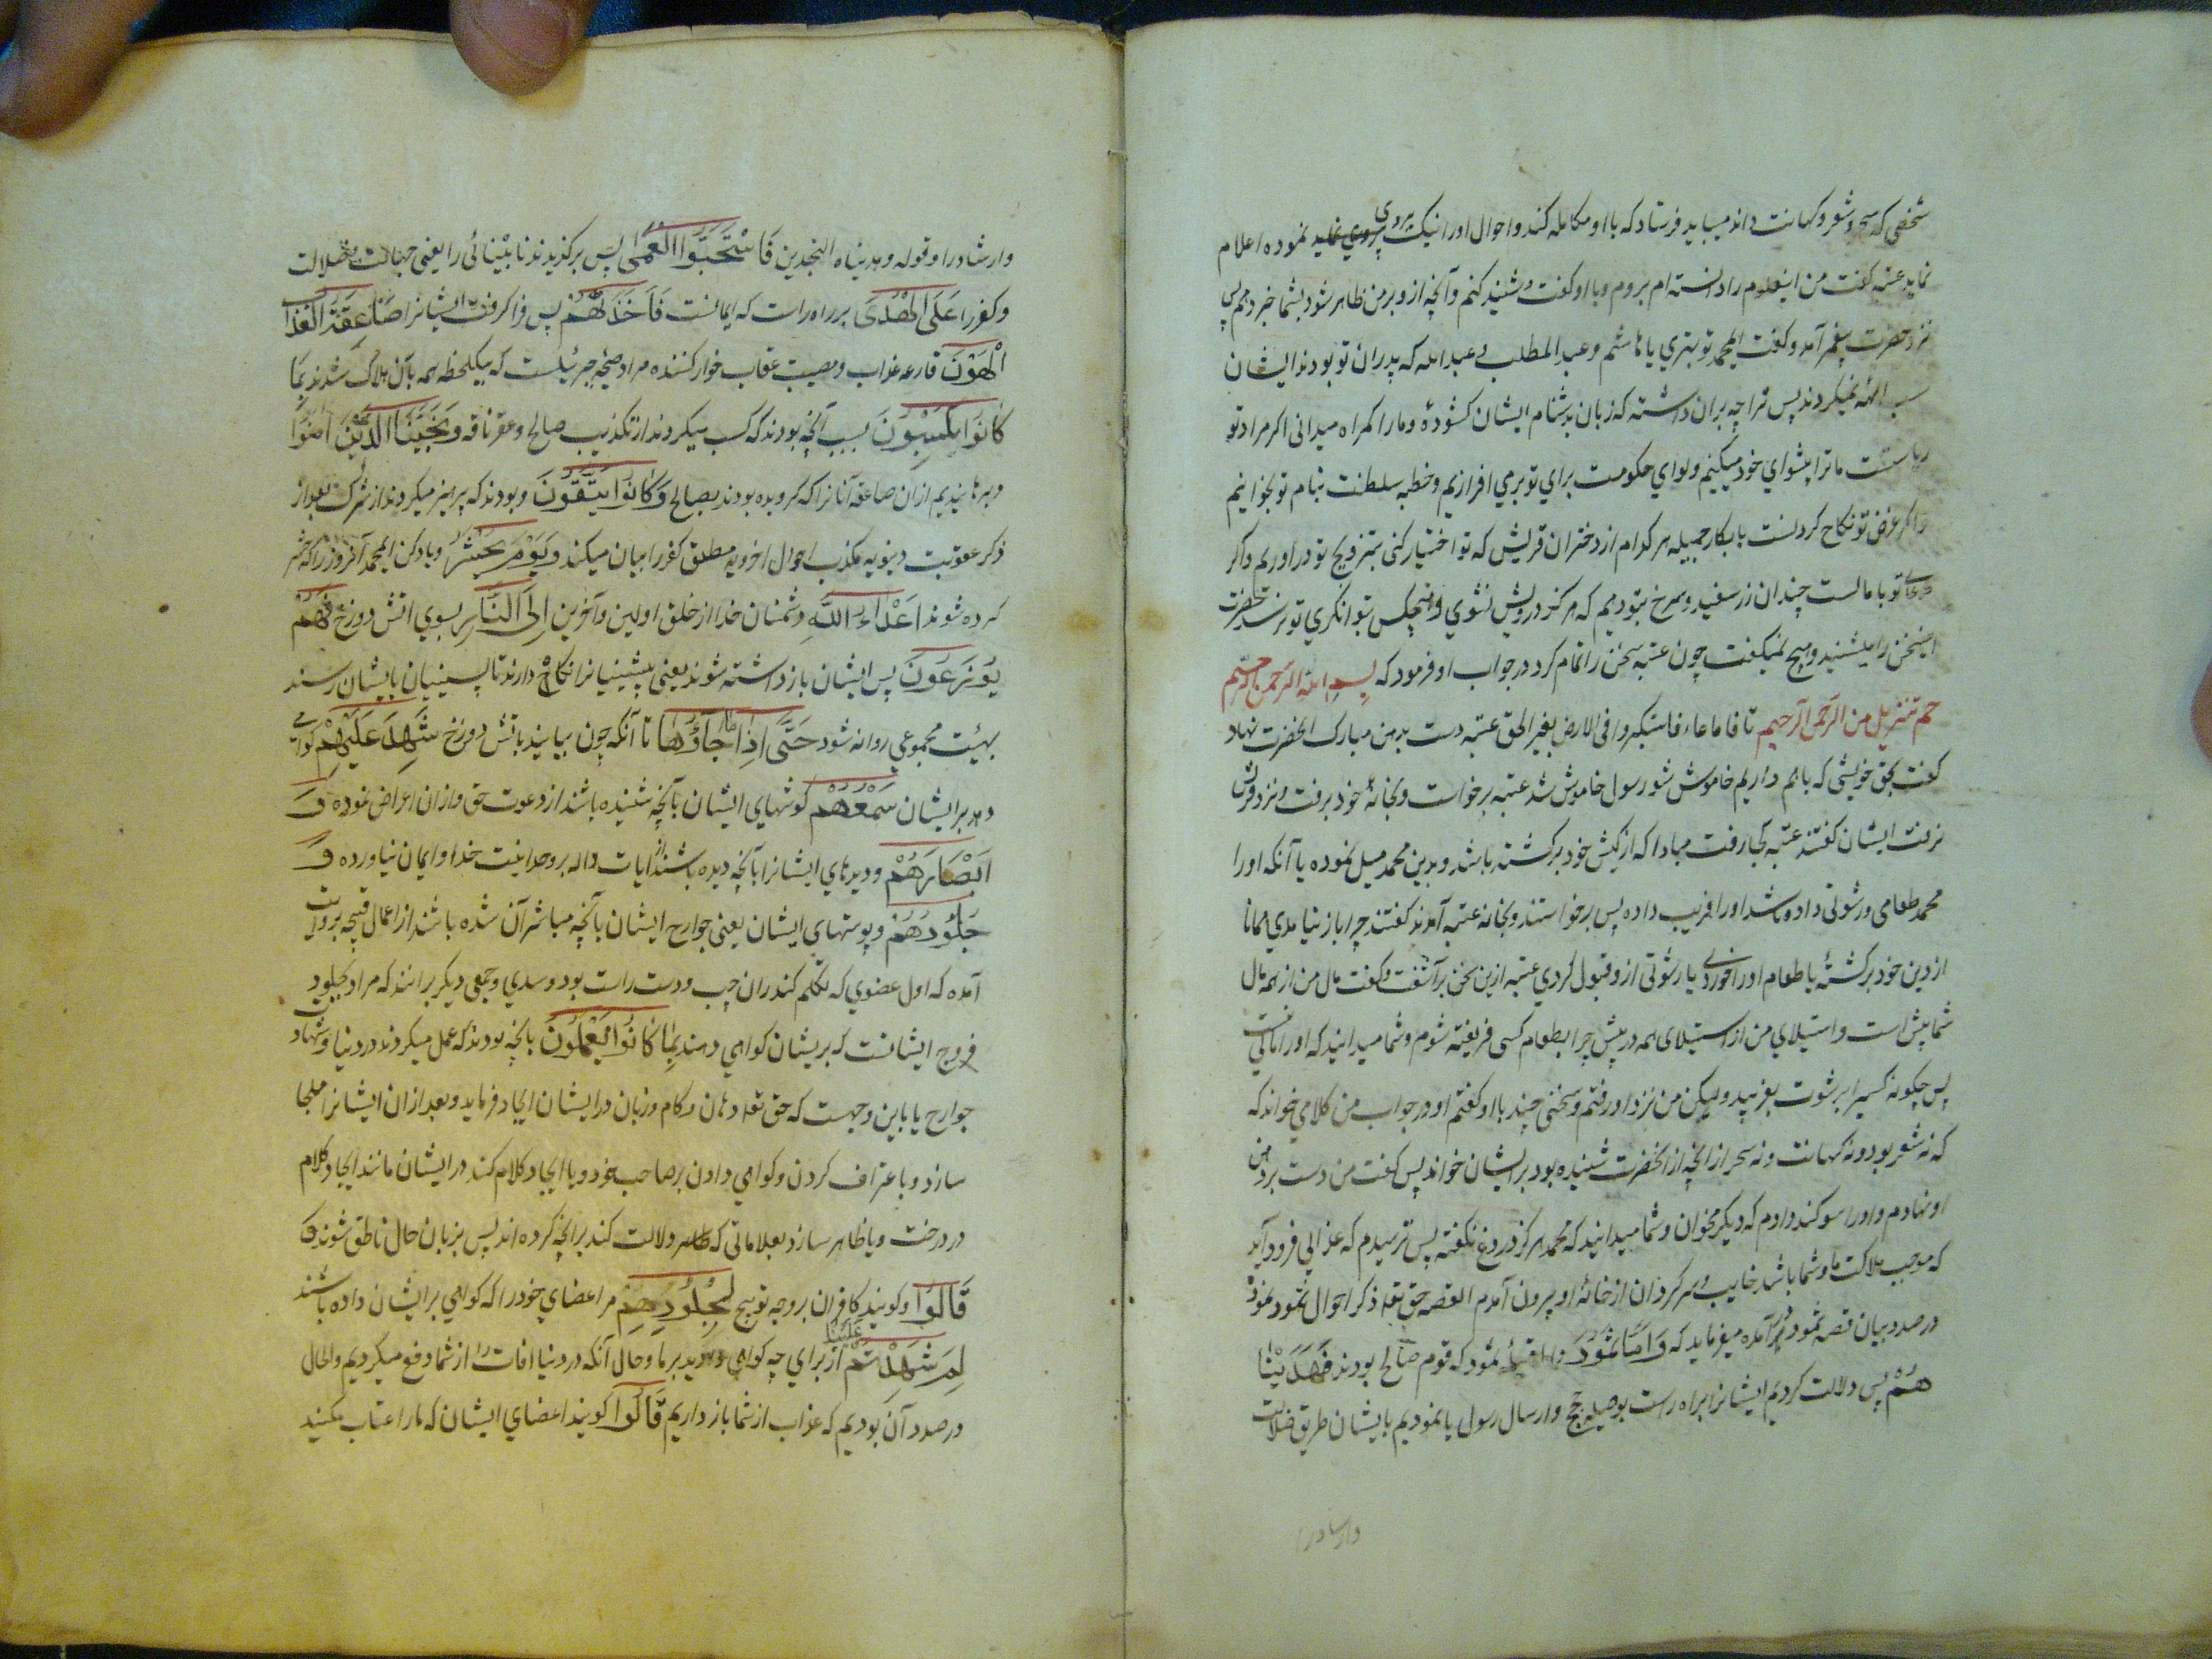 شخصی که سحر و شعر و کهانت داند میباید فرستاد که با او مکالمه کند و احوال او را نیک پیروی نموده اعلام
نماید عتبه کفت من اینعلوم را دانسته ام بروم و با او کفت و شنید کنم و آنچه از و بر من ظاهر شود بشما خبر دهم پس
نزد حضرت پیغمبر آمد و کفت ایمحمد تو بهتری یا هاشم و عبد المطلب و عبد الله که پدران تو بودند ایشان
سب الهه نمیکردند پس ترا چه بران داشته که زبان بدشنام ایشان کشودهٔ و ما را کمراه میدانی اکر مراد تو
ریاستست ما ترا پیشوای خود میکنیم و لوای حکومت برای تو برمی افرازیم و خطبه سلطنت بنام تو بخوانیم
و اکر غرض تو نکاح کردنست با بکار جمیله هر کدام از دختران قریش که تو اختیار کنی بتزویج تو در اوریم و اکر
تو با مالست چندان زر سفید و سرخ بتو دهیم که هرکز درویش نشوی و هیچکس بتوانکری تو نرسد حضرت
اینسخن را میشنید و هیچ نمیکفت چون عتبه سخن را تمام کرد در جواب او فرمود که بسم الله الرحمن الرحیم
حم تنزیل من الرحمن الرحیم تا فاما عاد فاستکبروا فی الارض بغیر الحق عتبه دست بدهن مبارک انحضرت نهاد
کفت بحق خویشی که باهم داریم خاموش شو رسول خاموش شد عتبه برخواست و بخانهٔ خود برفت و نزد قریش
نرفت ایشان کفتند عتبه کجا رفت مبادا که از کیش خود برکشته باشد و بدین محمد میل نموده یا آنکه او را
محمد طعامی و رشوتی داده باشد او را فریب داده پس برخواستند و بخانه عتبه آمدند کفتند چرا باز نیامدی همانا
از دین خود برکشتهٔ یا طعام او را خوردی یا رشوتی از و قبول کردی عتبه ازین سخن برآشفت و کفت مال من از همه مال
شما بیش است و استیلای من از استیلای همه در پیش چرا بطعام کسی فریفته شوم و شما میدانید که او را مالی نیست
پس چکونه کسی را برشوت بفریبد ولیکن من نزد او رفتم و سخنی چند با او کفتم او در جواب من کلامی خواند که
که نه شعر بود و نه کهانت و نه سحر از انچه از انحضرت شنیده بود بر ایشان خواند پس کفت من دست بر دهن
او نهادم و او را سوکند دادم که دیکر مخوان و شما میدانید که محمد هرکز دروغ نکفته پس ترسیدم که عذابی فرود آید
که موجب هلاکت ما و شما باشد خایب و سرکردان از خانهٔ او بیرون آمدم القصه حق تعه ذکر احوال ثمود نموده
در صدد بیان قصه ثمود آمده میفرماید که وَاَمّا ثَمُودُ ثمود که قوم صالح بودند فَهَدَیْنٰا
هُمْ پس دلالت کردیم ایشانرا براه راست بوصیله حجج و ارسال رسول یا نمودیم بایشان طریق ضلالت
و ارشاد را
و ارشاد را و قوله و هدیناه النجدین فَاسْتَحَبُّوا الْعَمٰی پس برکزیدند نابینائی را یعنی جهالت و ضلالت
و کفر را عَلَی الْهُدٰی بر راه راست که ایمانست فَاَخَذَتْهُمْ پس فرا کرفت ایشانرا صَاعِقَةُ الْعَذَابِ
الْهُونِ قارعه عذاب و مصیبت عقاب خوار کننده مراد صیحه جبرئیلست که بیکلحظه همه بآن هلاک شدند بِمَا
کَانُوا یَکْسِبُونَ بسبب آنچه بودند که کسب میکردند از تکذیب صالح و عقر ناقه وَنَجَّیْنَا الَّذِینَ اٰمَنُوا
و برهانیدیم ازان صاعقه آنانرا که کرویده بودند بصالح وَکَانُوا یَتَّقُونَ و بودند که پرهیز میکردند از شرک بعد از
ذکر عقوبت دنیویه مکذب احوال اخرویه مطلق کفر را بیان میکند وَیَوْمَ یُحْشَرُ و یاد کن ایمحمد آنروز را که حشر
کرده شوند اَعْدَاءُ اللّٰهِ دشمنان خدا از خلق اولین و آخرین اِلَی النَّارِ بسوی اتش دوزخ فَهُمْ
یُوزَعُونَ پس ایشان باز داشته شوند یعنی پیشینیانرا نکاه دارند تا پسینیان بایشان رسند
بهیئت مجموعی روانه شود حَتّٰی اِذَا مَا جَاؤُهَا تا آنکه چون بیایند باتش دوزخ شَهِدَ عَلَیْهِمْ کواهی
دهد بر ایشان سَمْعُهُمْ کوشهای ایشان بآنچه شنیده باشند از دعوت حق و ازان اعراض نموده وَ
اَبْصَارُهُمْ و دیدهای ایشانرا بآنچه دیده باشند از ایات داله بر وحدانیت خدا و ایمان نیاورده وَ
جُلُودُهُمْ و پوستهای ایشان یعنی جوارح ایشان بآنچه مباشر آن شده باشند از اعمال قبیحه بروایت
آمده که اول عضوی که تکلم کند ران چپ و دست راست بود و سدی و جمعی دیکر برانند که مراد بجلود
فروج ایشانست که بریشان کواهی دهند بِمَا کَانُوا یَعْمَلُونَ بانچه بودند که عمل میکردند در دنیا و شهاد
جوارح یا باین وجهست که حق تعه دهان و کام و زبان در ایشان ایجاد فرماید و بعد ازان ایشانرا ملجا
سازد و باعتراف کردن و کواهی دادن بر صاحب خود و یا ایجاد کلام کند در ایشان مانند ایجاد کلام
در درخت و یا ظاهر سازد بعلاماتی که دلالت کند بر انچه کرده اند پس بزبان حال ناطق شوند وَ
قَالُوا و کویند کافران بر وجه توبیخ لِجُلُودِهِمْ مر اعضای خود را که کواهی بر ایشان داده باشند
لِمَ شَهِدْتُمْ عَلَیْنَا از برای چه کواهی دادید بر ما و حال آنکه در دنیا افات را از شما دفع میکردیم و الحال
در صدد آن بودیم که عذاب از شما باز داریم قَالُوا کویند اعضای ایشان که ما را عتاب مکنید